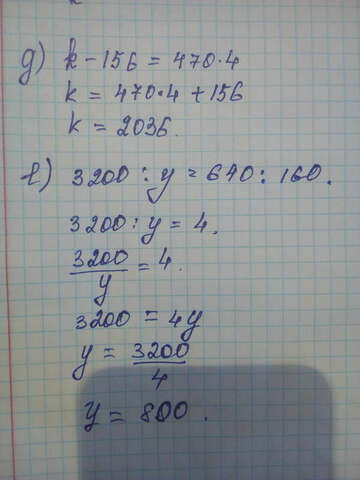 д) k - 156 = 470·4
k = 470·4 + 156
k = 2036.
е) 3200 : y = 640 : 160.
3200 : y = 4.
3200/y = 4.
3200 = 4y
y = 3200/4
y = 800.